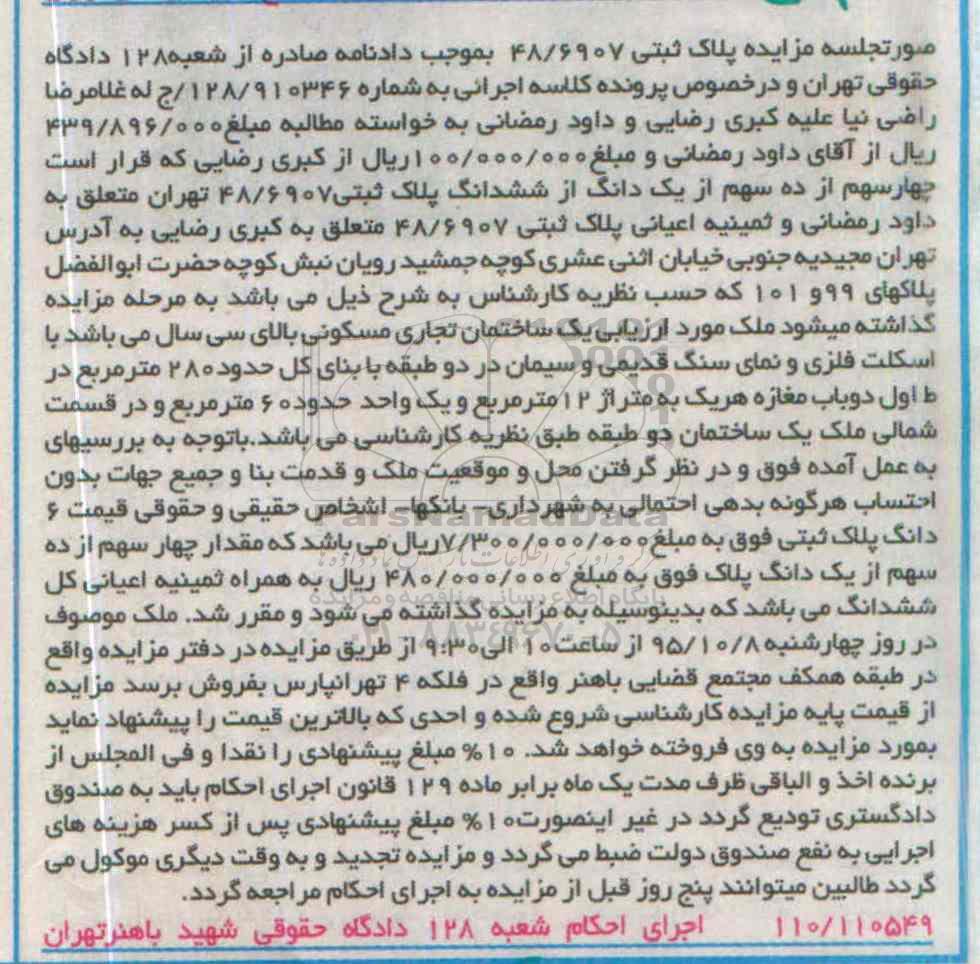 صورتجلسه مزایده پلاک ثبتی ۴۸/۶۹۰۷ بموجب دادنامه صادره از شعبه۱۲۸ دادگاه
حقوقی تهران و درخصوص پرونده کلاسه اجرائی به شماره ۱۲۸/۹۱۰۳۴۶/ج له غلامرضا
راضی نیا علیه کبری رضایی و داود رمضانی به خواسته مطالبه مبلغ۴۳۹/۸۹۶/۰۰۰
ریال از آقای داود رمضانی و مبلغ۱۰۰/۰۰۰/۰۰۰ریال از کبری رضایی که قرار است
چهارسهم از ده سهم از یک دانگ از ششدانگ پلاک ثبتی۴۸/۶۹۰۷ تهران متعلق به
داود رمضانی و ثمینیه اعیانی پلاک ثبتی ۴۸/۶۹۰۷ متعلق به کبری رضایی به آدرس
تهران مجیدیه جنوبی خیابان اثنی عشری کوچه جمشید رویان نبش کوچه حضرت ابوالفضل
پلاکهای ۹۹و ۱۰۱ که حسب نظریه کارشناس به شرح ذیل می باشد به مرحله مزایده
گذاشته میشود ملک مورد ارزیابی یک ساختمان تجاری مسکونی بالای سی سال می باشد با
اسکلت فلزی و نمای سنگ قدیمی و سیمان در دو طبقه با بنای کل حدود۲۸۰ مترمربع در
ط اول دوباب مغازه هریک به متراژ ۱۲مترمربع و یک واحد حدود۶۰ مترمربع و در قسمت
شمالی ملک یک ساختمان دو طبقه طبق نظریه کارشناسی می باشد.باتوجه به بررسیهای
به عمل آمده فوق و در نظر گرفتن محل و موقعیت ملک و قدمت بنا و جمیع جهات بدون
احتساب هرگونه بدهی احتمالی به شهرداری- بانکها- اشخاص حقیقی و حقوقی قیمت ۶
دانگ پلاک ثبتی فوق به مبلغ۷/۳۰۰/۰۰۰/۰۰۰ریال می باشد که مقدار چهار سهم از ده
سهم از یک دانگ پلاک فوق به مبلغ ۴۸۰/۰۰۰/۰۰۰ ریال به همراه ثمینیه اعیانی کل
ششدانگ می باشد که بدینوسیله به مزایده گذاشته می شود و مقرر شد. ملک موصوف
در روز چهارشنبه ۹۵/۱۰/۸ از ساعت۱۰ الی۹:۳۰ از طریق مزایده در دفتر مزایده واقع
در طبقه همکف مجتمع قضایی باهنر واقع در فلکه ۴ تهرانپارس بفروش برسد مزایده
از قیمت پایه مزایده کارشناسی شروع شده و احدی که بالاترین قیمت را پیشنهاد نماید
بمورد مزایده به وی فروخته خواهد شد. ۱۰% مبلغ پیشنهادی را نقدا و فی المجلس از
برنده اخذ و الباقی ظرف مدت یک ماه برابر ماده ۱۲۹ قانون اجرای احکام باید به صندوق
دادگستری تودیع گردد در غیر اینصورت۱۰% مبلغ پیشنهادی پس از کسر هزینه های
اجرایی به نفع صندوق دولت ضبط می گردد و مزایده تجدید و به وقت دیگری موکول می
گردد طالبین میتوانند پنج روز قبل از مزایده به اجرای احکام مراجعه گردد.
۱۱۰/۱۱۰۵۴۹ اجرای احکام شعبه ۱۲۸ دادگاه حقوقی شهید باهنرتهران
ParsNamadData
پایگاه اطلاع رسانی مناقصه و مزایده